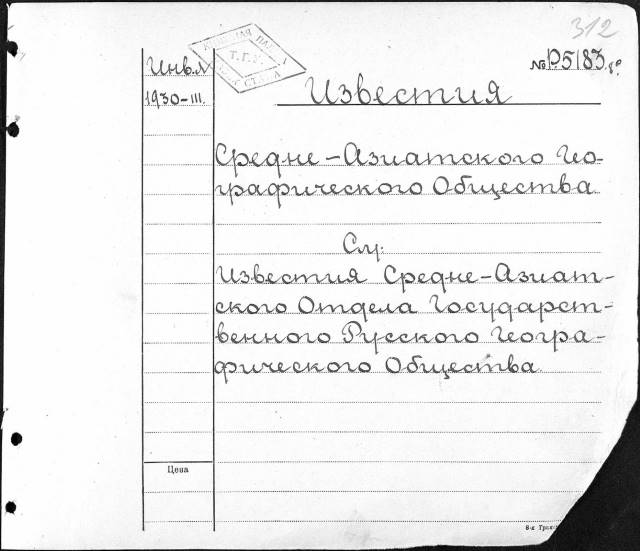 312
Инв.Л
Т.Г.У.
№ Р.5183 8º
1930-III.
Известия
Средне-Азиатского Гео-
графического Общества.
См:
Известия Средне-Азиат-
ского Отдела Государст-
венного Русского Геогра-
фического Общества.
Цена
8-я